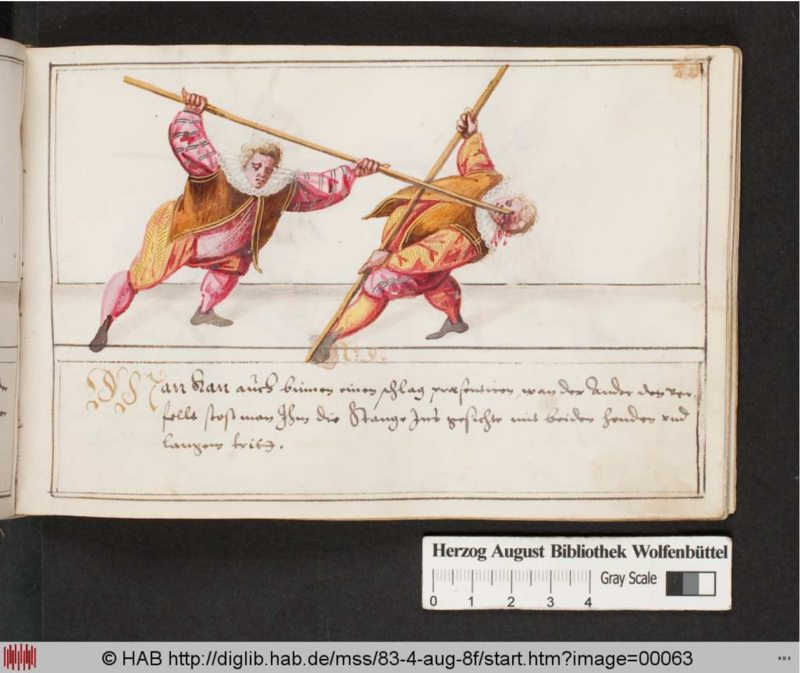 Man kan auch binnen einen schlag præsentiren, wan der Ander den ver-
felt stost man Ihm die Stange Ins gesichte mit beiden henden und
langem trite.
Herzog August Bibliothek Wolfenbüttel
Gray Scale
0 1 2 3 4
© HAB http://diglib.hab.de/mss/83-4-aug-8f/start.htm?image=00063